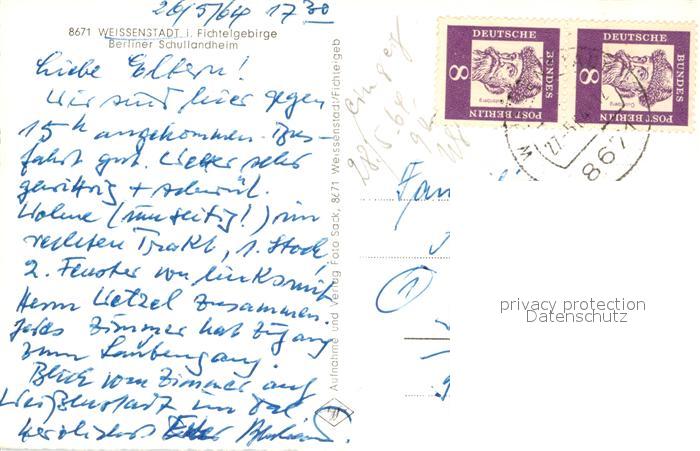 26/5/64 17 30
8671 WEISSENSTADT i. Fichtelgebirge
Berliner Schullandheim
Liebe Eltern!
Wir sind hier gegen
15 h angekommen. Bus-
fahrt gut. Wetter sehr
gewittrig + schwül.
Wohne (umseitig!) im
rechten Trakt, 1. Stock,
2. Fenster von links mit
Herrn Wetzel zusammen.
Jedes Zimmer hat Zugang
zum Laubengang.
Blick vom Zimmer auf
Weißenstadt im Tal
Herzlichst Euer
Aufnahme und Verlag Foto Sack, 8671 Weissenstadt/Fichtelgeb
28/5-64
DEUTSCHE BUNDES
POST BERLIN
8
Gutenberg
DEUTSCHE BUNDES
POST BERLIN
8
Gutenberg
27.5.64
8671
Fam
1
privacy protection
Datenschutz